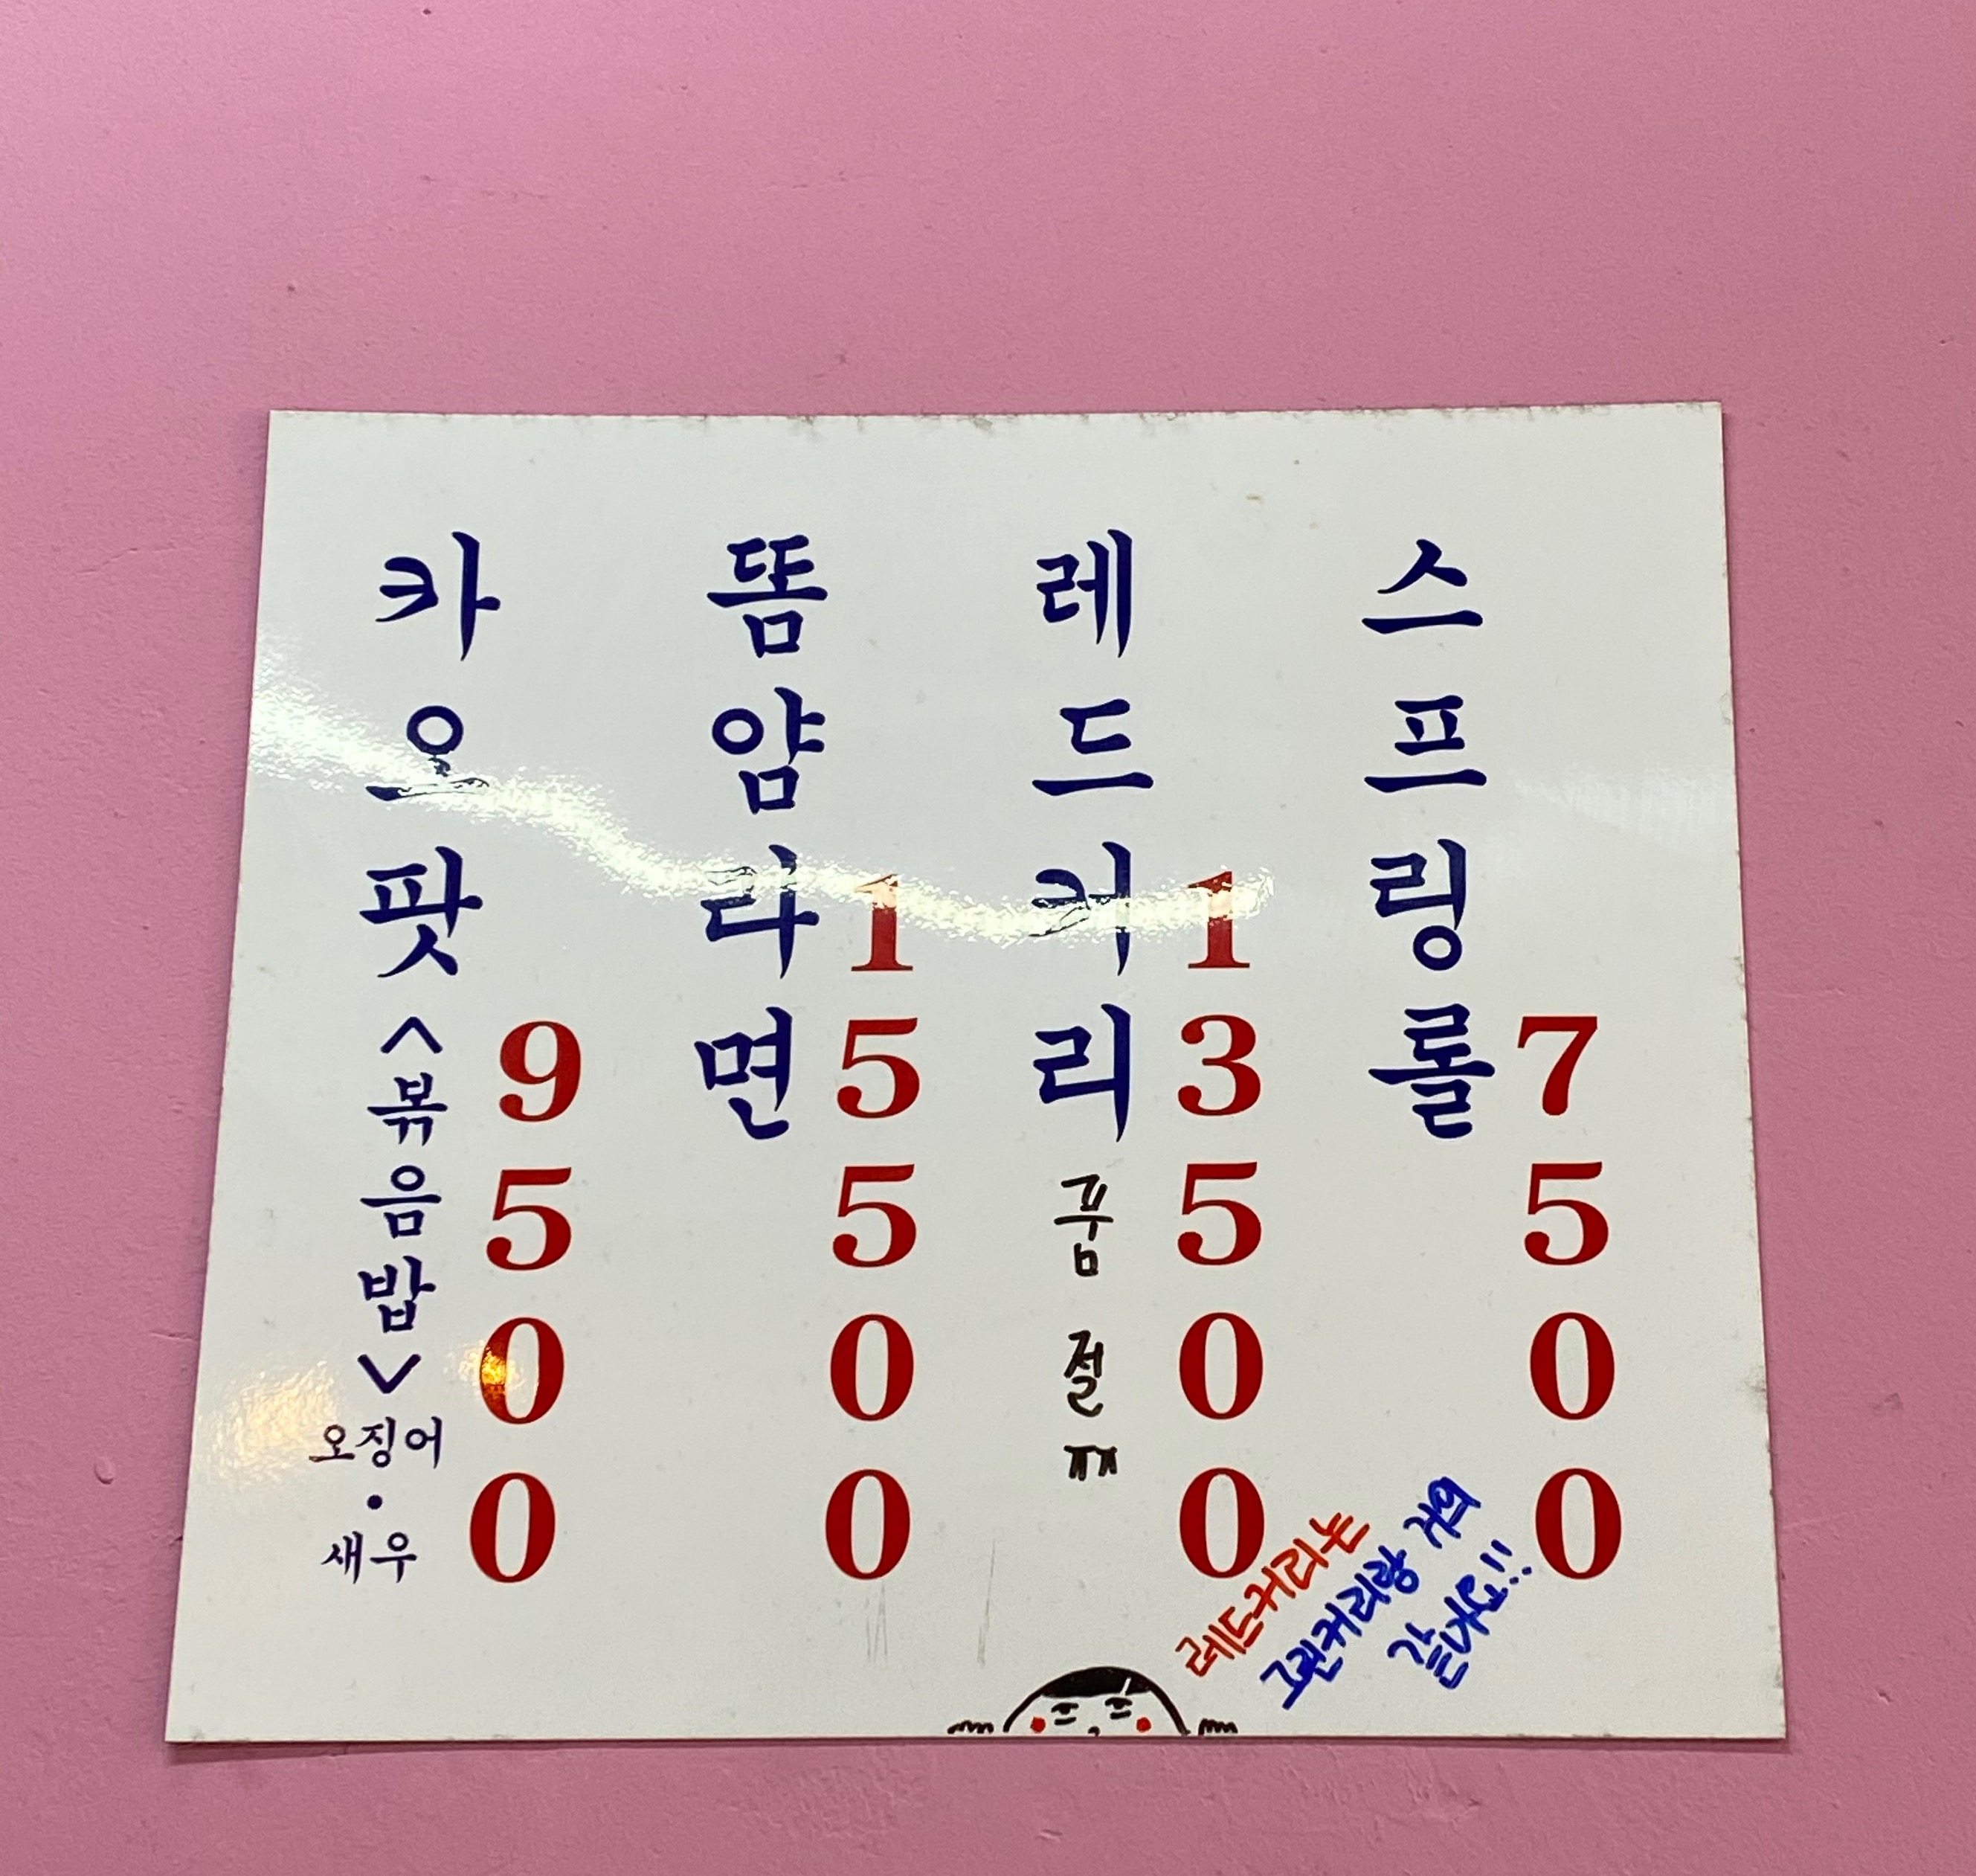 카오팟
<볶음밥>
오징어
·
새우
9500
똠얌라면
15500
레드커리
품절ㅠㅠ
13500
스프링롤
7500
레드커리는
그린커리랑 거의
같은가요!!